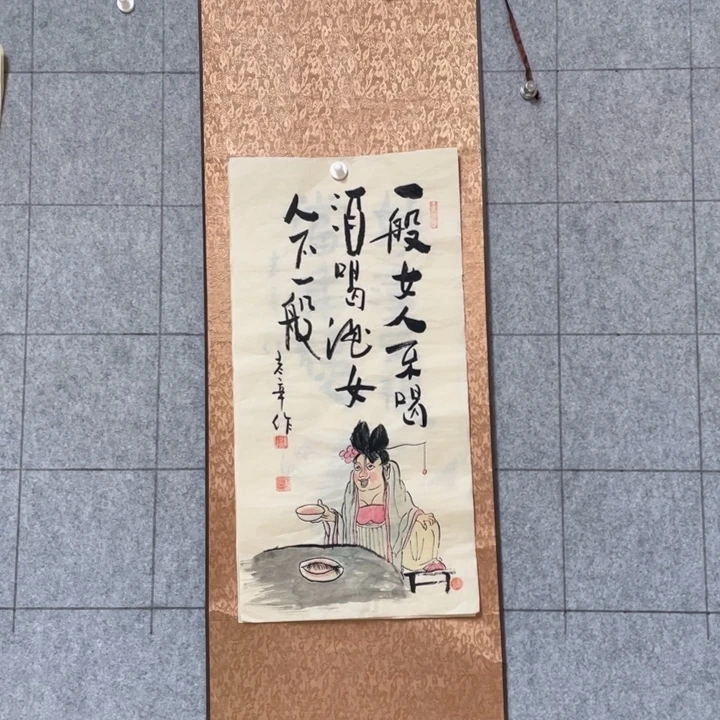 一般女人不喝
酒喝酒女
人不一般
老辛作